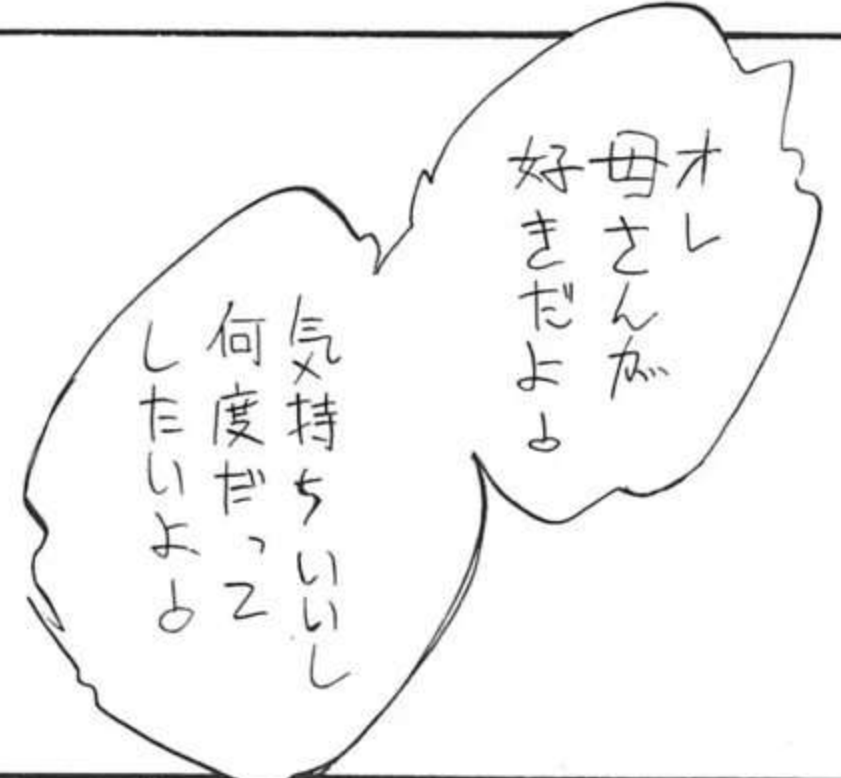 オレ
母さんが
好きだよ
気持ちいいし
何度だって
したいよ